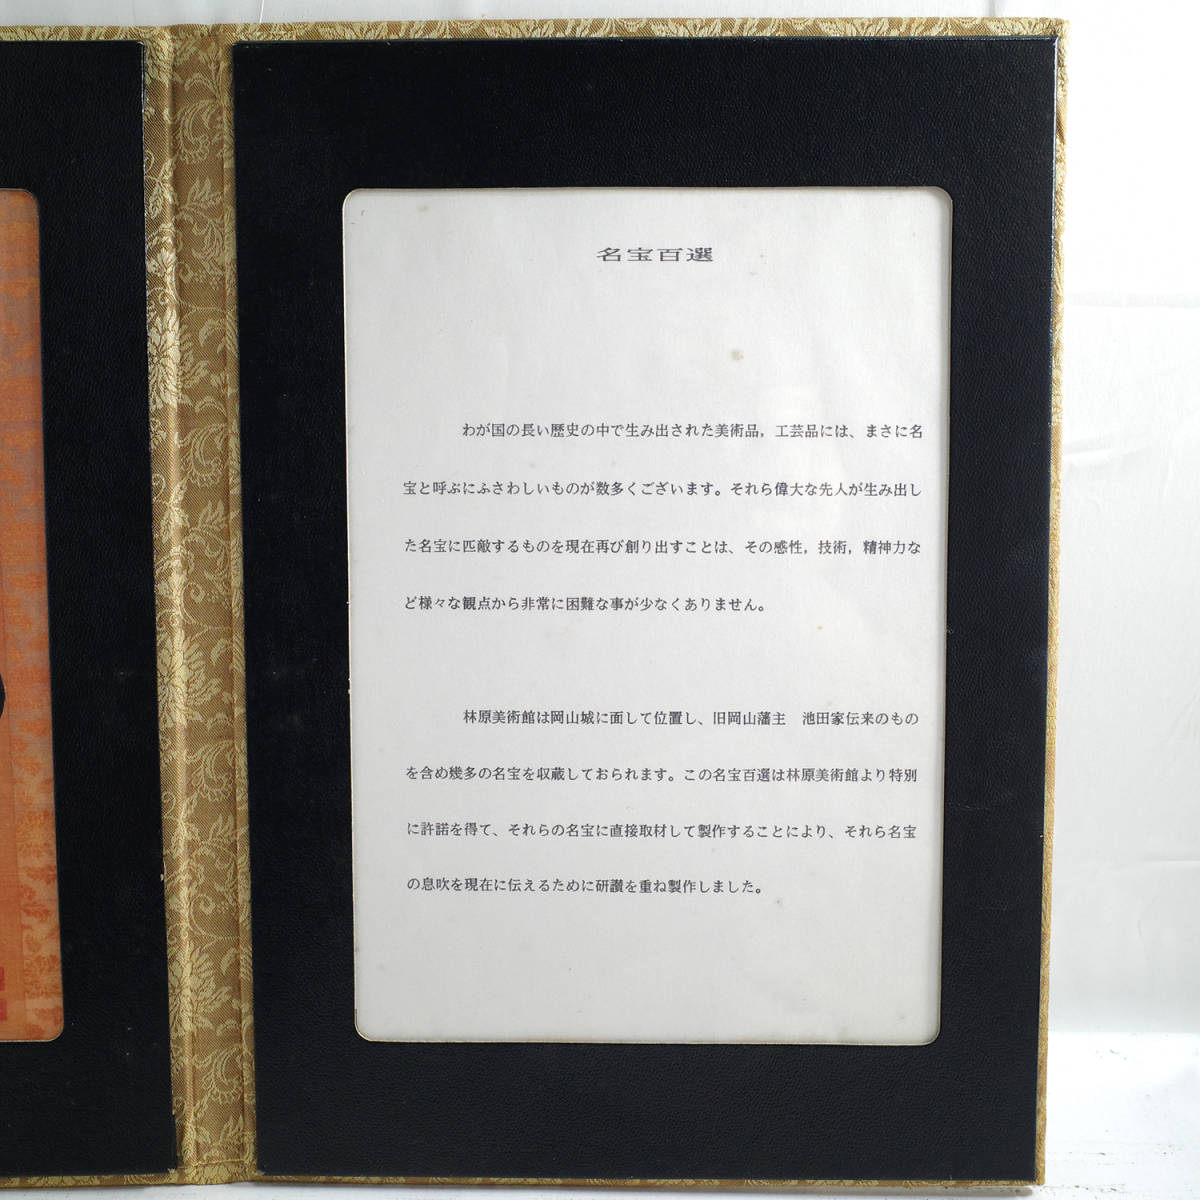 名宝百選
わが国の長い歴史の中で生み出された美術品，工芸品には、まさに名
宝と呼ぶにふさわしいものが数多くございます。それら偉大な先人が生み出し
た名宝に匹敵するものを現在再び創り出すことは、その感性，技術，精神力な
ど様々な観点から非常に困難な事が少なくありません。
林原美術館は岡山城に面して位置し、旧岡山藩主　池田家伝来のもの
を含め幾多の名宝を収蔵しておられます。この名宝百選は林原美術館より特別
に許諾を得て、それらの名宝に直接取材して製作することにより、それら名宝
の息吹を現在に伝えるために研讃を重ね製作しました。